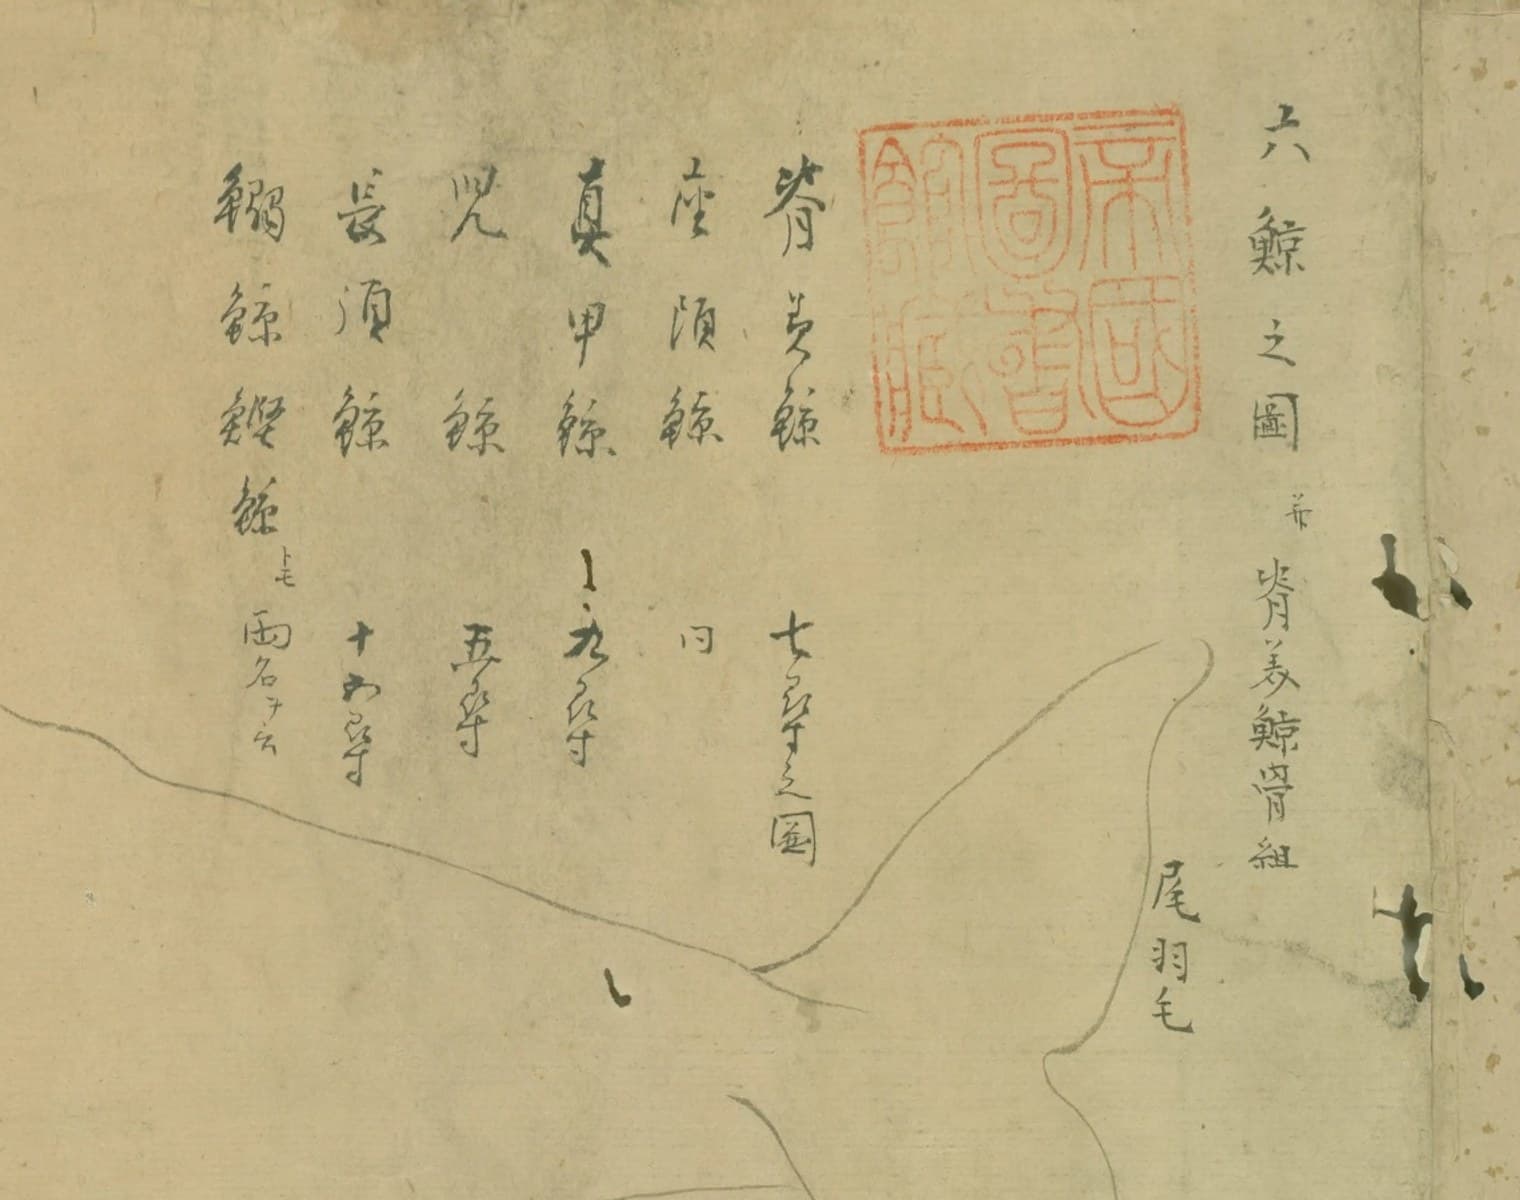 六鯨之圖 并 脊美鯨骨組
尾羽毛
帝國
圖書
館藏
脊美鯨 七尋之圖
座頭鯨 同
真甲鯨 九尋
児鯨 五尋
長須鯨 十五尋
鰯鯨鰹鯨トモ両名ヲ云